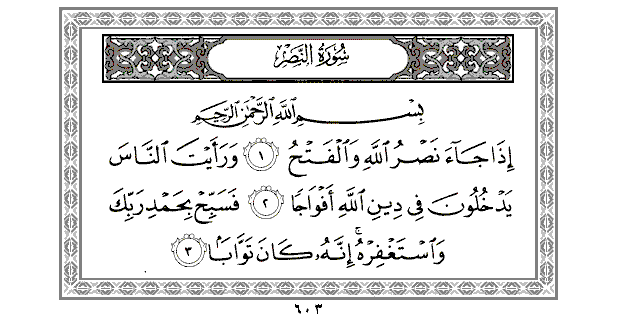 سُورَةُ النَّصْرِ
بِسْمِ اللَّهِ الرَّحْمَٰنِ الرَّحِيمِ
إِذَا جَآءَ نَصْرُ اللَّهِ وَالْفَتْحُ ١ وَرَأَيْتَ النَّاسَ
يَدْخُلُونَ فِي دِينِ اللَّهِ أَفْوَاجًا ٢ فَسَبِّحْ بِحَمْدِ رَبِّكَ
وَاسْتَغْفِرْهُ ۚ إِنَّهُۥ كَانَ تَوَّابًا ٣
٦٠٣